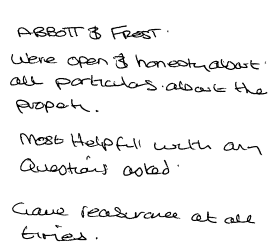 ABBOTT & FROST.
Were open & honest about
all particulars about the
propert.
Most Helpfull with any
Questions asked.
Gave reasurance at all
times.